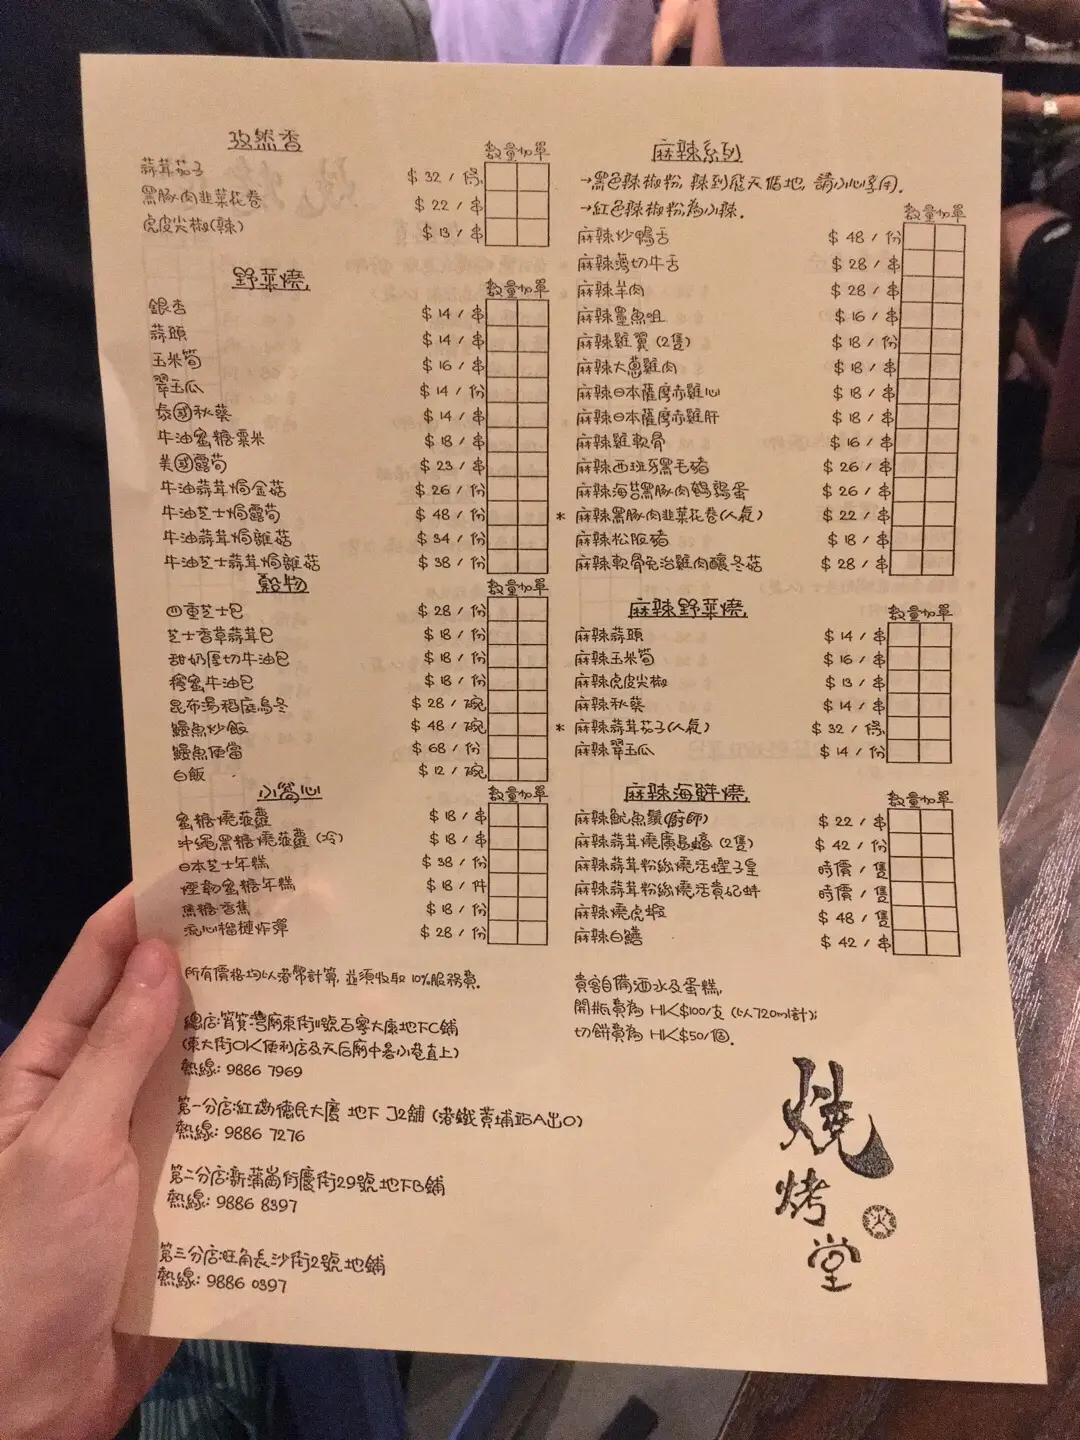 孜然香
數量 加單
蒜茸茄子 $32/條
黑豚肉韭菜花卷 $22/串
虎皮尖椒(辣) $13/串
野菜燒
數量 加單
銀杏 $14/串
蒜頭 $14/串
玉米筍 $16/串
翠玉瓜 $14/份
泰國秋葵 $14/串
牛油蜜糖粟米 $18/串
美國露荀 $23/串
牛油蒜茸焗金菇 $26/份
牛油芝士焗露荀 $48/份
牛油蒜茸焗雜菇 $34/份
牛油芝士蒜茸焗雜菇 $38/份
穀物
數量 加單
四重芝士包 $28/份
芝士香草蒜茸包 $18/份
甜奶厚切牛油包 $18/份
蜜牛油包 $18/份
昆布湯稻庭烏冬 $28/碗
鰻魚炒飯 $48/碗
鰻魚便當 $68/份
白飯 $12/碗
小窩心
數量 加單
蜜糖燒菠蘿 $18/串
沖繩黑糖燒菠蘿(冷) $18/串
日本芝士年糕 $38/份
煙韌蜜糖年糕 $18/件
焦糖香蕉 $18/份
流心榴槤炸彈 $28/份
所有價格均以港幣計算,並須收取10%服務費.
總店:筲箕灣廟東街11號百寧大廈地下C舖
(東大街OK便利店及天后廟中巷小巷直上)
熱線: 9886 7969
第一分店:紅磡德民大廈 地下 J2舖 (港鐵黃埔站A出口)
熱線: 9886 7276
第二分店:新蒲崗衍慶街29號地下B舖
熱線: 9886 8397
第三分店:旺角長沙街2號地舖
熱線: 9886 0397
麻辣系列
→黑色辣椒粉, 辣到飛天佰地, 請小心享用.
→紅色辣椒粉為小辣.
數量 加單
麻辣炒鴨舌 $48/份
麻辣薄切牛舌 $28/串
麻辣羊肉 $28/串
麻辣墨魚咀 $16/串
麻辣雞翼(2隻) $18/份
麻辣大蔥雞肉 $18/串
麻辣日本薩摩赤雞心 $18/串
麻辣日本薩摩赤雞肝 $18/串
麻辣雞軟骨 $16/串
麻辣西班牙黑毛豬 $26/串
麻辣海苔黑豚肉鵪鶉蛋 $26/串
* 麻辣黑豚肉韭菜花卷(人氣) $22/串
麻辣松阪豬 $18/串
麻辣軟骨免治雞肉釀冬菇 $28/串
麻辣野菜燒
數量 加單
麻辣蒜頭 $14/串
麻辣玉米筍 $16/串
麻辣虎皮尖椒 $13/串
麻辣秋葵 $14/串
* 麻辣蒜茸茄子(人氣) $32/條
麻辣翠玉瓜 $14/份
麻辣海鮮燒
數量 加單
麻辣魷魚鬚(廚師) $22/串
麻辣蒜茸燒廣島蠔(2隻) $42/份
麻辣蒜茸粉絲燒活蟶子皇 時價/隻
麻辣蒜茸粉絲燒活貴妃蚌 時價/隻
麻辣燒虎蝦 $48/隻
麻辣白鱔 $42/串
貴客自備酒水及蛋糕,
開瓶費為 HK$100/支 (以720ml計);
切餅費為 HK$50/個.
燒
烤
堂
火